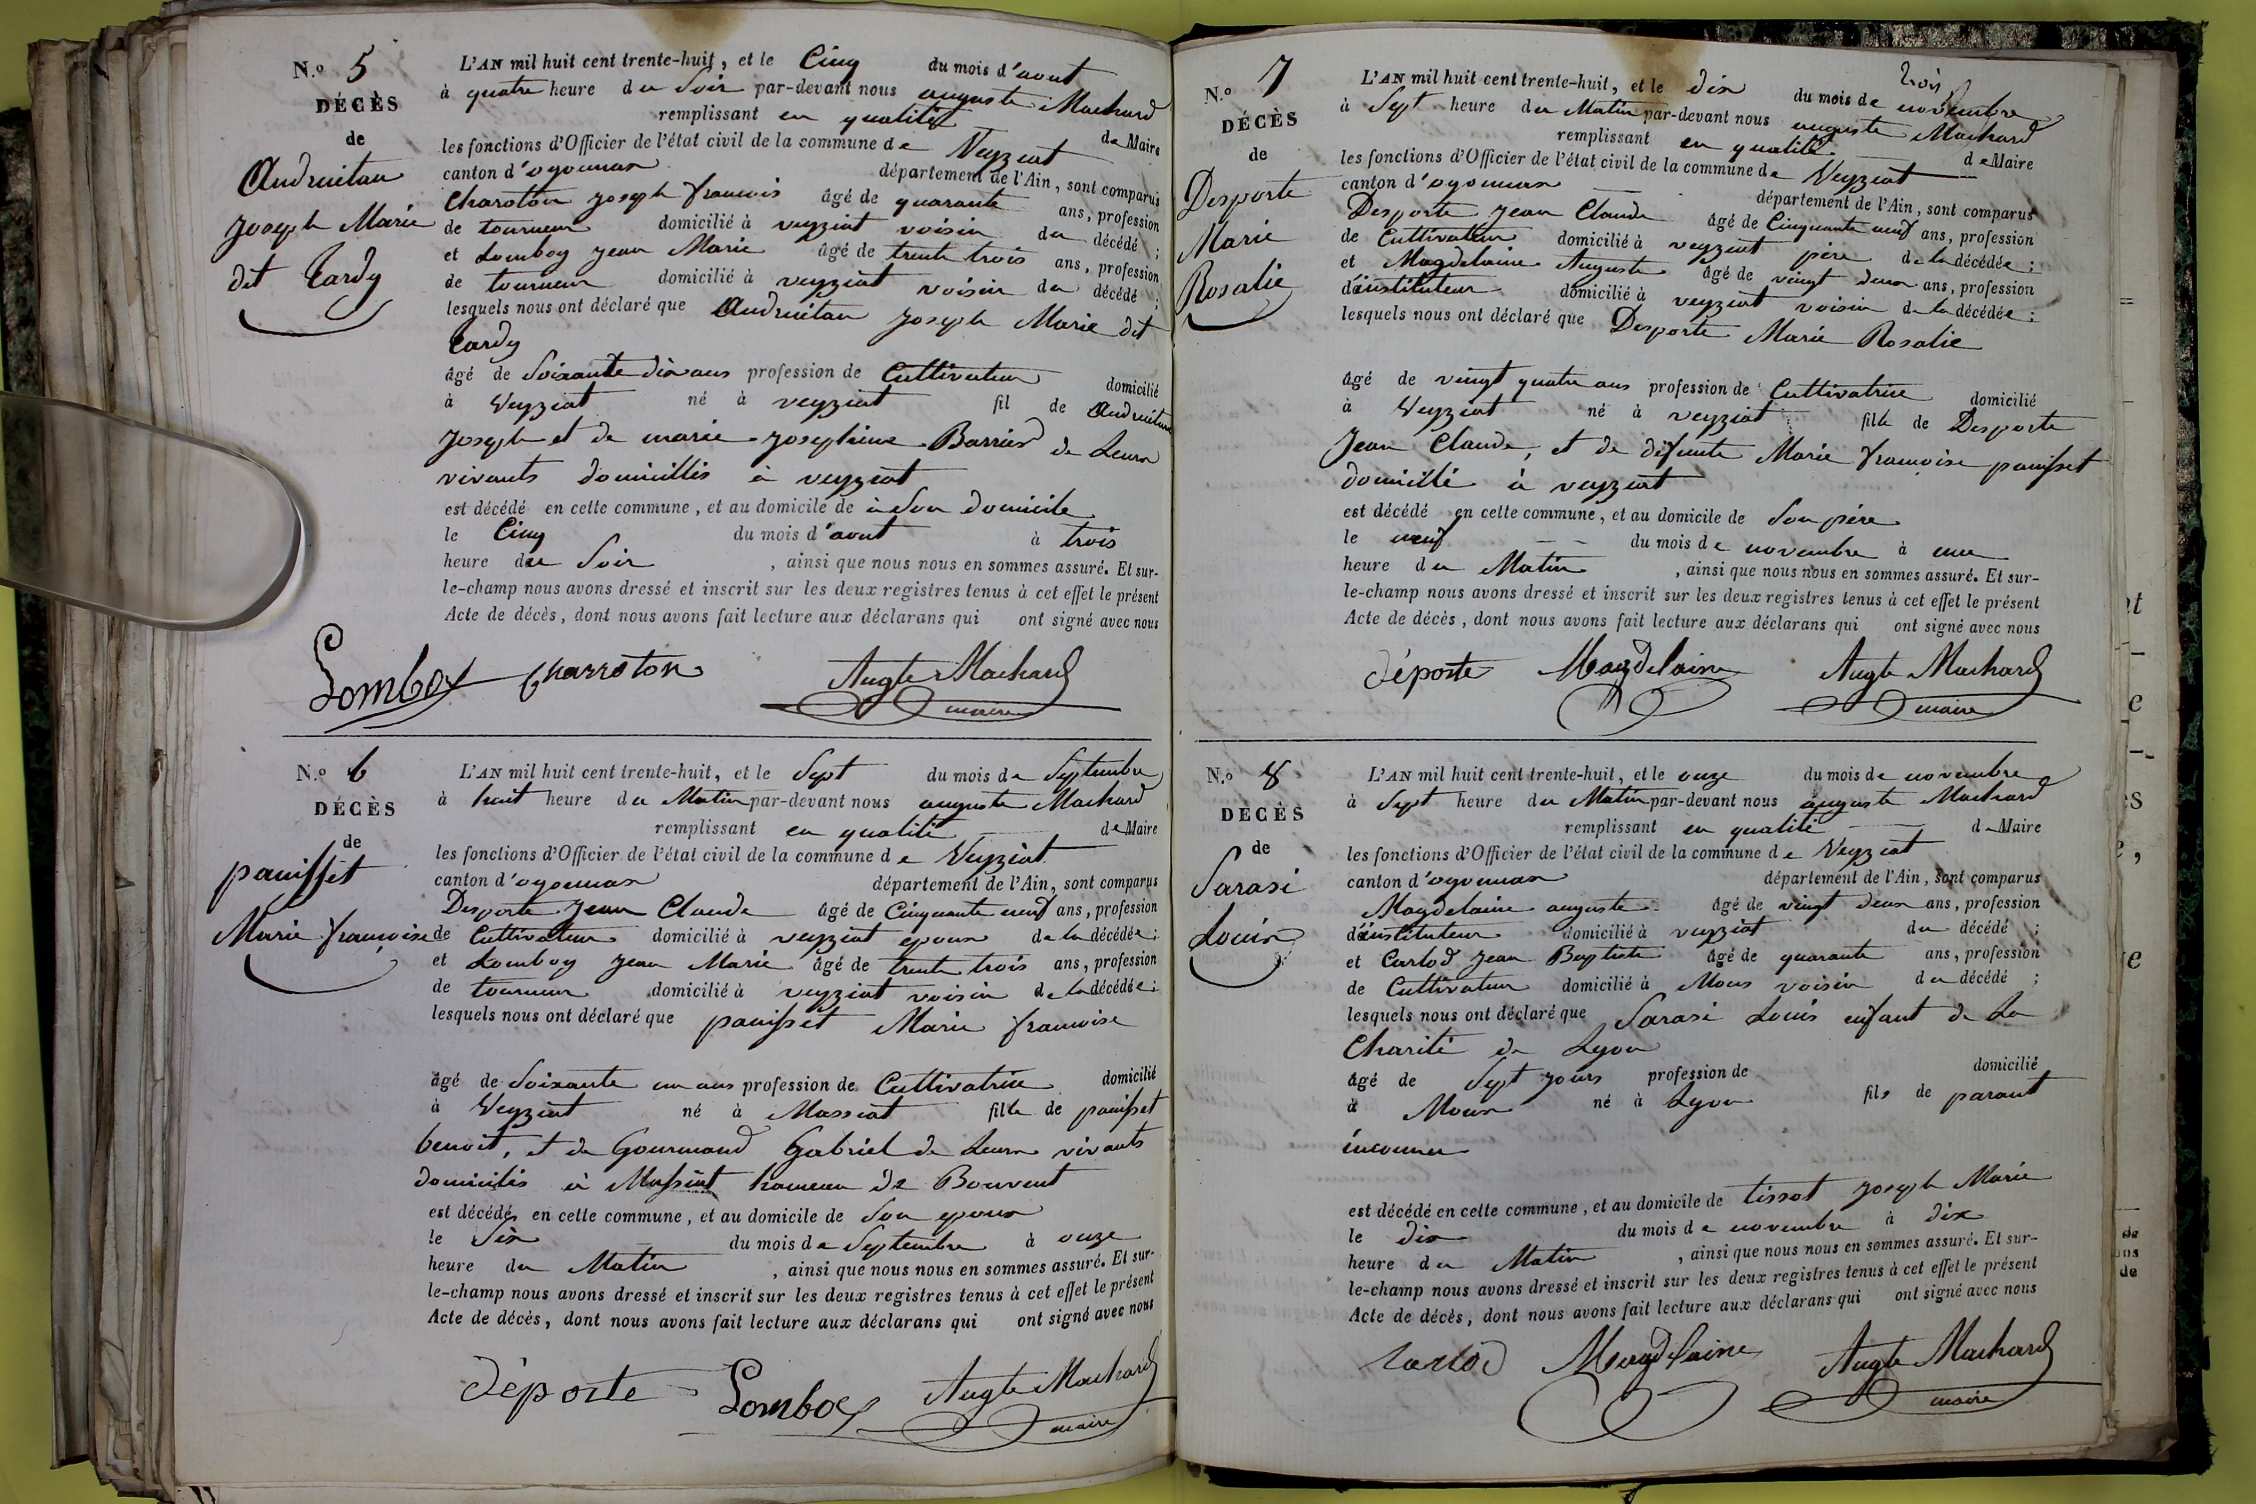 N.o 5
DÉCÈS
de
Andruitan
Joseph Marie
dit Tardy
L'AN mil huit cent trente-huit, et le Cinq du mois d'aout
à quatre heure du Soir par-devant nous auguste Machard
remplissant en qualité de Maire
les fonctions d'Officier de l'état civil de la commune de Veyziat
canton d'oyonnax département de l'Ain, sont comparus
Charoton Joseph francois âgé de quarante ans, profession
de tourneur domicilié à veyziat voisin du décédé;
et Lomboy Jean Marie âgé de trente trois ans, profession
de tourneur domicilié à veyziat voisin du décédé;
lesquels nous ont déclaré que Andruitan Joseph Marie dit
Tardy
âgé de Soixante dix ans profession de Cultivateur domicilié
à Veyziat né à veyziat fil de Andruitan
Joseph et de marie-Josephine Barrier de Leurs
vivants domicilliés à veyziat
est décédé en cette commune, et au domicile de à Son domicile
le Cinq du mois d'aout à trois
heure du Soir, ainsi que nous nous en sommes assuré. Et sur-
le-champ nous avons dressé et inscrit sur les deux registres tenus à cet effet le présent
Acte de décès, dont nous avons fait lecture aux déclarans qui ont signé avec nous
Lomboy Charroton Augte Machard
maire
N.o 6
DÉCÈS
de
panisset
Marie francoise
L'AN mil huit cent trente-huit, et le Sept du mois de Septembre
à huit heure du Matin par-devant nous auguste Machard
remplissant en qualité de Maire
les fonctions d'Officier de l'état civil de la commune de Veyziat
canton d'oyonnax département de l'Ain, sont comparus
Desporte Jean Claude âgé de Cinquante neuf ans, profession
de Cultivateur domicilié à veyziat epoux de la décédée;
et Lomboy Jean Marie âgé de trente trois ans, profession
de tourneur domicilié à veyziat voisin de la décédée;
lesquels nous ont déclaré que panisset Marie francoise
âgé de Soixante un ans profession de Cultivatrice domicilié
à Veyziat né à Massiat fille de panisset
benoit, et de Gourmand Gabriel de Leurs vivants
domiciliés à Massiat hameau de Bouvent
est décédé en cette commune, et au domicile de Son epoux
le Six du mois de Septembre à onze
heure du Matin, ainsi que nous nous en sommes assuré. Et sur-
le-champ nous avons dressé et inscrit sur les deux registres tenus à cet effet le présent
Acte de décès, dont nous avons fait lecture aux déclarans qui ont signé avec nous
Déporte Lomboy Augte Machard
maire
N.o 7
DÉCÈS
de
Desporte
Marie
Rosalie
L'AN mil huit cent trente-huit, et le dix du mois de novembre
à Sept heure du Matin par-devant nous auguste Machard
remplissant en qualité de Maire
les fonctions d'Officier de l'état civil de la commune de Veyziat
canton d'oyonnax département de l'Ain, sont comparus
Desporte Jean Claude âgé de Cinquante neuf ans, profession
de Cultivateur domicilié à veyziat père de la décédée;
et Magdelaine Auguste âgé de vingt deux ans, profession
d'instituteur domicilié à veyziat voisin de la décédée;
lesquels nous ont déclaré que Desporte Marie Rosalie
âgé de vingt quatre ans profession de Cultivatrice domicilié
à Veyziat né à veyziat fille de Desporte
Jean Claude, et de défunte Marie francoise panisset
domicilié à veyziat
est décédé en cette commune, et au domicile de Son père
le neuf du mois de novembre à une
heure du Matin, ainsi que nous nous en sommes assuré. Et sur-
le-champ nous avons dressé et inscrit sur les deux registres tenus à cet effet le présent
Acte de décès, dont nous avons fait lecture aux déclarans qui ont signé avec nous
déporte Magdelaine Augte Machard
maire
N.o 8
DÉCÈS
de
Sarasi
Louis
L'AN mil huit cent trente-huit, et le onze du mois de novembre
à Sept heure du Matin par-devant nous auguste Machard
remplissant en qualité de Maire
les fonctions d'Officier de l'état civil de la commune de Veyziat
canton d'oyonnax département de l'Ain, sont comparus
Magdelaine auguste âgé de vingt deux ans, profession
d'instituteur domicilié à veyziat du décédé;
et Carlod Jean Baptiste âgé de quarante ans, profession
de Cultivateur domicilié à Mons voisin du décédé;
lesquels nous ont déclaré que Sarasi Louis enfant de La
Charité de Lyon
âgé de Sept jours profession de domicilié
à Mons né à Lyon fils de parant
inconnu
est décédé en cette commune, et au domicile de tissot Joseph Marie
le dix du mois de novembre à dix
heure du Matin, ainsi que nous nous en sommes assuré. Et sur-
le-champ nous avons dressé et inscrit sur les deux registres tenus à cet effet le présent
Acte de décès, dont nous avons fait lecture aux déclarans qui ont signé avec nous
Carlod Magdelaine Augte Machard
maire